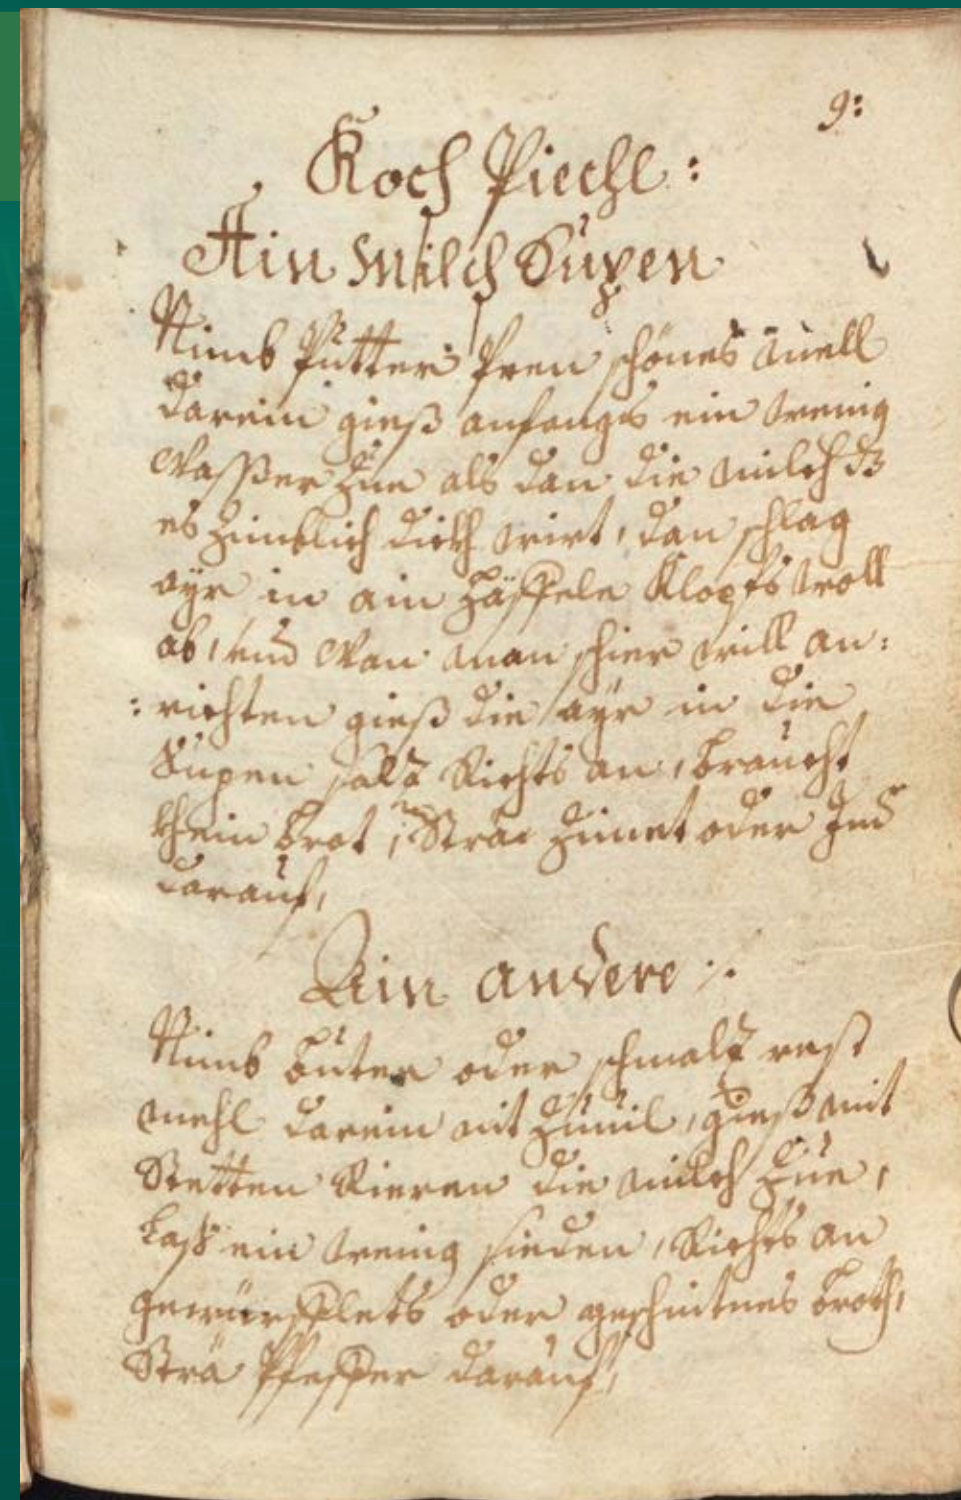 9:
Koch Piechl:
Ain Milch Supen
Nimb Putter Pren schönes Mell
darein gieß anfangs ein wenig
Wasser zue als dan die milch dz
es zimblich dickh wirt, dan schlag
ayr in ain Häffele Klopfs woll
ab, vnd Wan man schier will an:
:richten gieß die ayr in die
Supen salz Richts an, braucht
khein brot, Strae Zimet oder Imb
darauf,
Ain andere :.
Nimb buter oder schmalz rest
mehl darein nit Zuuil, gieß mit
Stetten Rieren die milch Zue,
Lass ein wenig sieden, Richts an
gewürfflets oder geschnitnes broth,
Strä Pfeffer darauf,